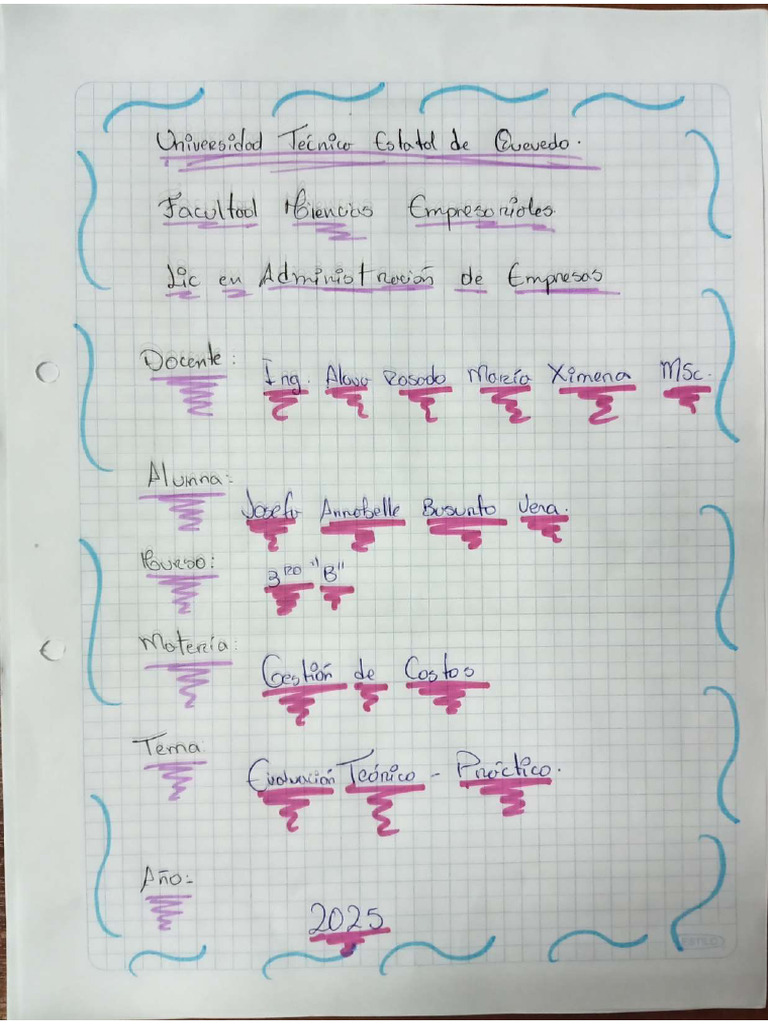 Universidad Técnica Estatal de Quevedo.
Facultad Ciencias Empresariales
Lic en Administración de Empresas
Docente: Ing. Alava Rosado María Ximena MSc.
Alumna: Josefa Annabelle Busunto Vera.
Curso: 3RO "B"
Materia: Gestión de Costos
Tema Evaluación Teórico - Práctico.
Año: 2025
ESTILO